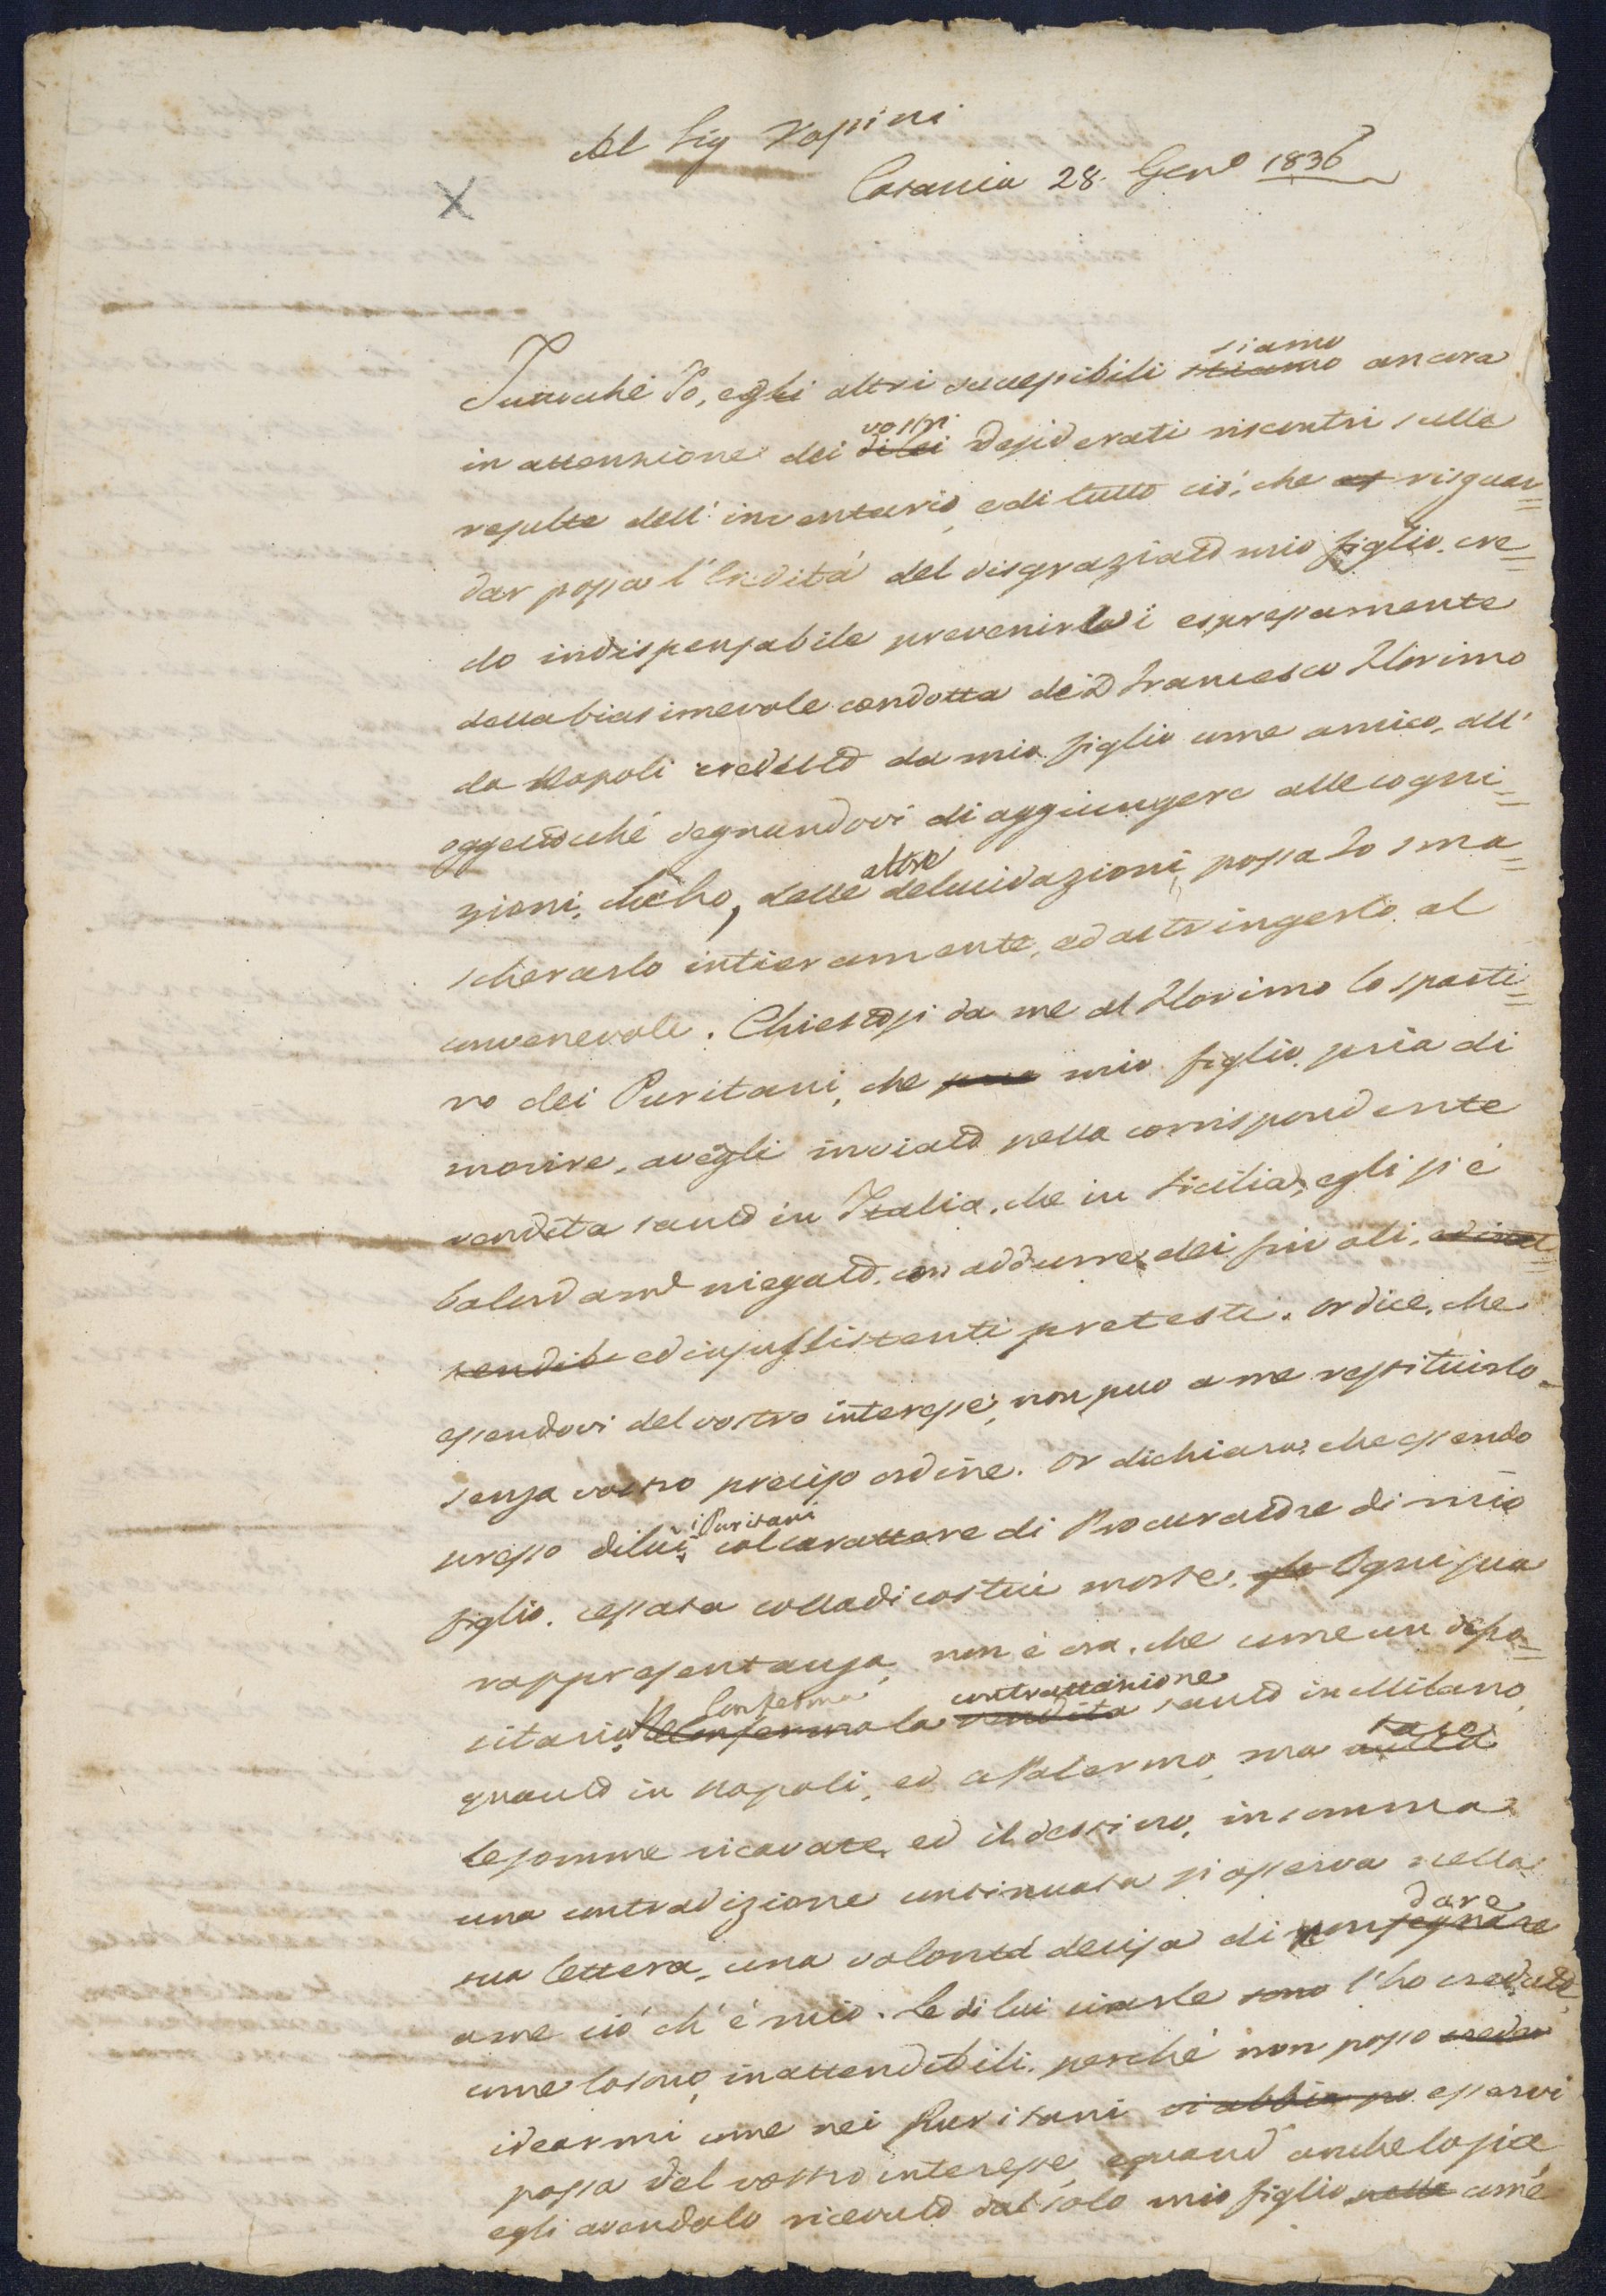 Al Sig Rossini
Catania 28. Gen.o 1836
X
siamo
Tuttocché Io, e gli altri successibili stiamo ancora
vostri
in attenzione dei di lei desiderati riscontri sulle
resulte dell'inventario, e di tutto ciò, che risguar=
dar possa l'Eredità del disgraziato mio figlio, cre=
do indispensabile prevenirvi espressamente
della biasimevole condotta di D Francesco Florimo
da Napoli creduto da mio figlio come amico, all'
oggettocché degnandovi di aggiungere alle cogni=
altre
zioni, che ho, delle delucidazioni, possa Io sma=
scherarlo intieramente, ed astringerlo al
convenevole. Chiestosi da me al Florimo lo sparti=
to dei Puritani, che mio figlio, pria di
morire, avegli inviato pella corrispondente
vendita tanto in Italia, che in Sicilia, egli si è
balordam.e niegato, con addurre dei frivoli,
ed insussistenti pretesti. Or dice, che
essendovi del vostro interesse, non può a me restituirlo
senza vostro preciso ordine. Or dichiara, che essendo
i Puritani
presso di lui, col carattere di Procuratore di mio
figlio, cessata colla di costui morte, Ogni sua
rappresentanza, non è ora, che come un depo=
Conferma contrattazione
sitario. la vendita tanto in Milano,
tace
quanto in Napoli, ed a Palermo, ma
le somme ricavate, ed il destino, in somma
una contradizione continuata si osserva nella
dare
sua lettera, una volontà decisa di non segnare
a me ciò ch'è mio. Le di lui ciarle sono l'ho credute,
come lo sono, inattendibili, perché non posso credere
idearmi come nei Puritani vi abbia esservi
possa del vostro interesse, quand' anche lo sia,
egli avendolo ricevuto dal solo mio figlio, come